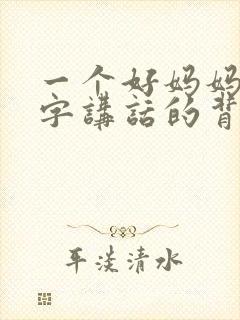 一个好妈妈
字講話的背
平淡清水